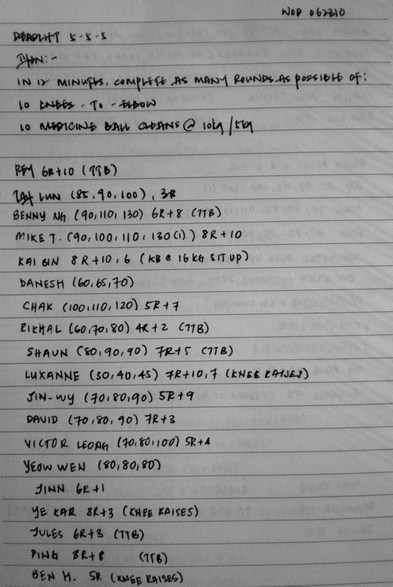 WOD 062310
DEADLIFT 5-5-5
THEN:-
IN 12 MINUTES, COMPLETE AS MANY ROUNDS AS POSSIBLE OF:
10 KNEES - TO - ELBOW
10 MEDICINE BALL CLEANS @ 10kg / 5kg
REY 6R+10 (TTB)
LUN (85, 90, 100), 3R
BENNY NG (90, 110, 130) 6R+8 (TTB)
MIKE T. (90, 100, 110, 130(1)) 8R+10
KAI BIN 8R+10, 6 (KB @ 16KG SIT UP)
DANESH (60, 65, 70)
CHAK (100, 110, 120) 5R+7
RIKHAL (60, 70, 80) 4R+2 (TTB)
SHAUN (80, 90, 90) 7R+5 (TTB)
LUXANNE (30, 40, 45) 7R+10, 7 (KNEE RAISES)
JIN-WY (70, 80, 90) 5R+9
DAVID (70, 80, 90) 7R+3
VICTOR LEONG (70, 80, 100) 5R+4
YEOW WEN (80, 80, 80)
JINN 6R+1
YE KAR 8R+3 (KNEE RAISES)
JULES 6R+3 (TTB)
PING 8R+8 (TTB)
BEN H. 5R (KNEE RAISES)